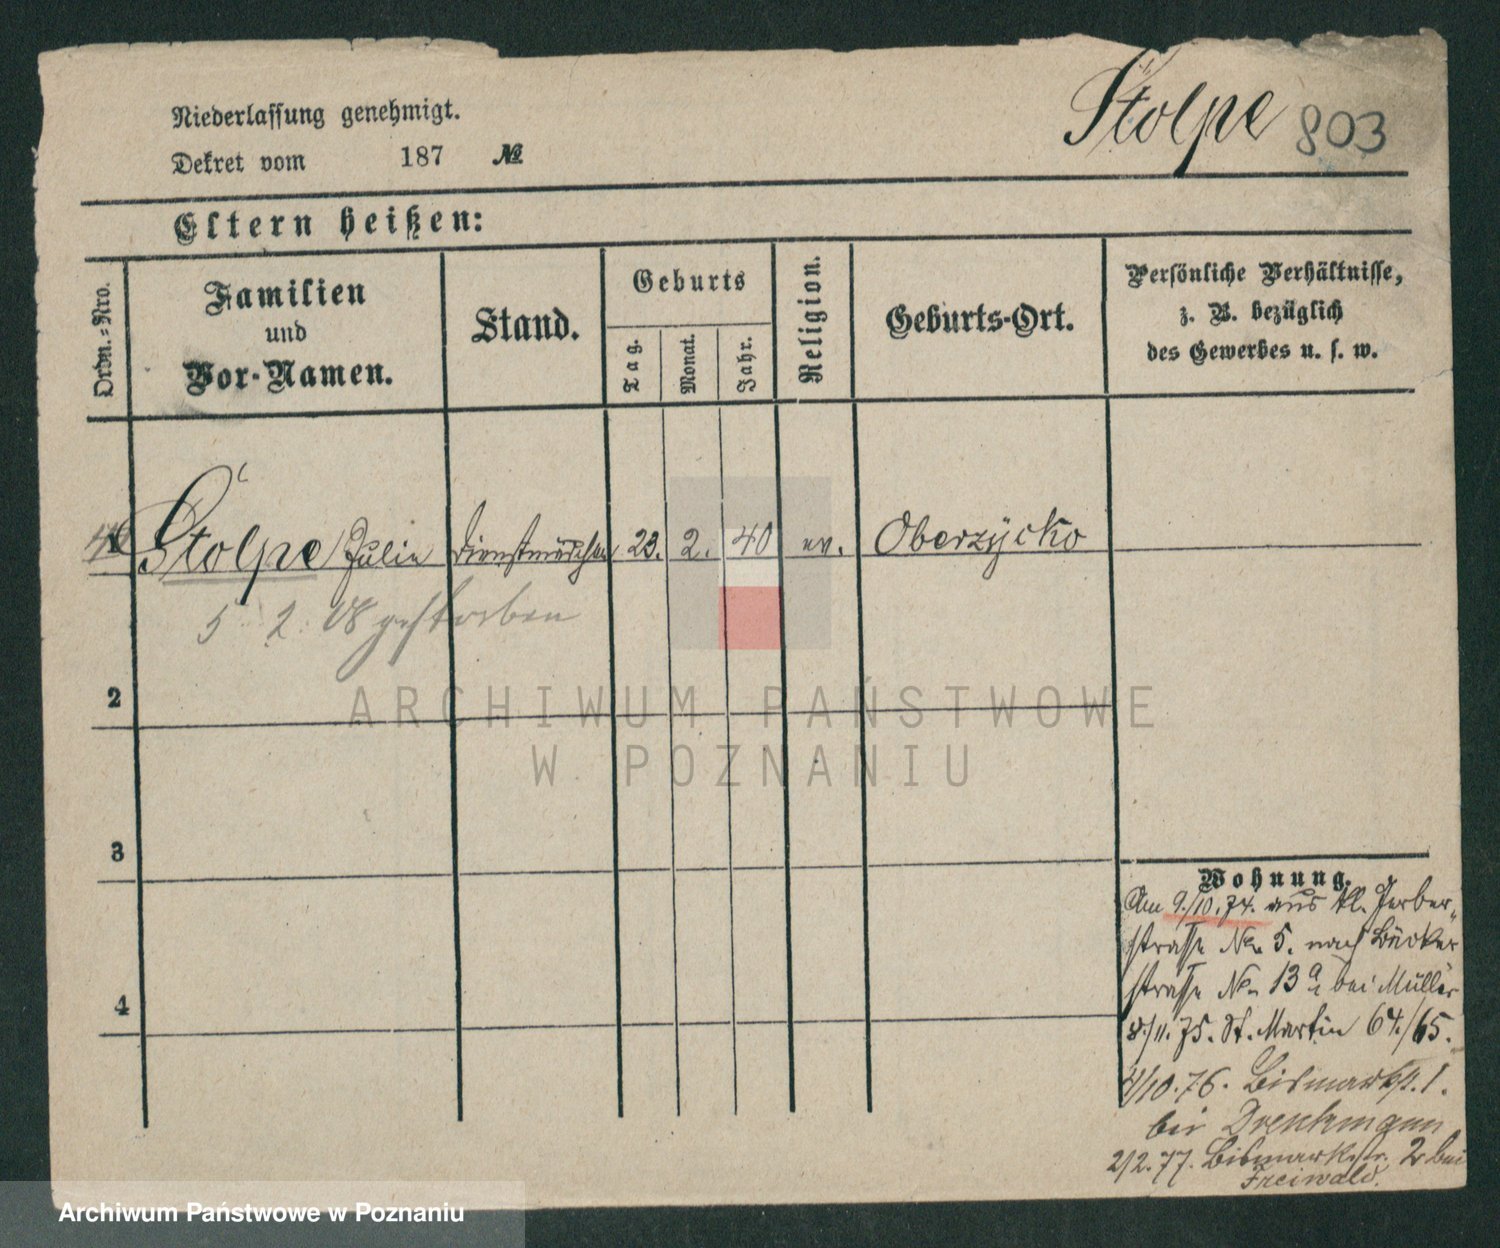 Niederlassung genehmigt.
Dekret vom 187 №
Stolpe 803
Eltern heißen:
Ordn.-Nro.
Familien
und
Vor-Namen.
Stand.
Geburts
Tag.
Monat.
Jahr.
Religion.
Geburts-Ort.
Persönliche Verhältnisse,
z. B. bezüglich
des Gewerbes u. s. w.
Stolpe Julie Dienstmädchen 23. 2. 40 ev. Oberzycko
5. 2. 08 gestorben
2
3
4
Wohnung.
Am 9./10.74. aus kl. Gerber-
strasse No 5. nach Bäcker
strasse No 13a bei Müller
8./11.75. St. Martin 64./65.
4/10.76. Bismarkstr. 1.
bei Drenkmann
2/2.77. Bismarkstr. 2 bei
Freiwald.
ARCHIWUM PAŃSTWOWE
W POZNANIU
Archiwum Państwowe w Poznaniu